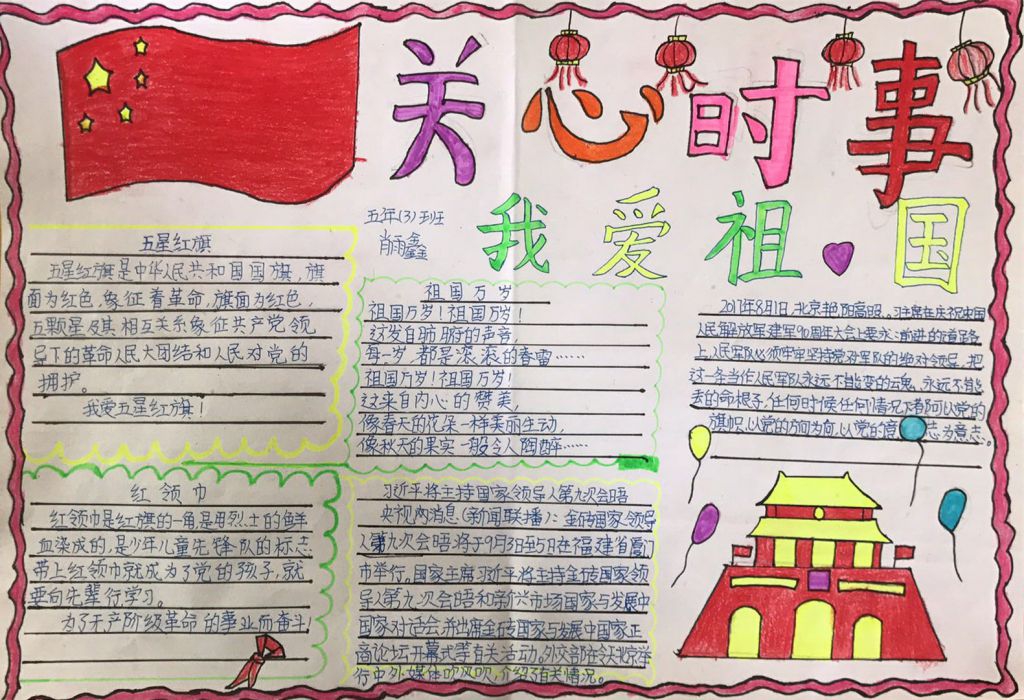 关心时事
我爱祖国
五年(3)班
肖雨鑫
五星红旗
五星红旗是中华人民共和国国旗,旗
面为红色,象征着革命,旗面为红色,
五颗星及其相互关系象征共产党领
导下的革命人民大团结和人民对党的
拥护。
我爱五星红旗!
祖国万岁
祖国万岁!祖国万岁!
这发自肺腑的声音,
每一岁,都是滚滚的春雷……
祖国万岁!祖国万岁!
这来自内心的赞美,
像春天的花朵一样美丽生动,
像秋天的果实一般令人陶醉……
2017年8月1日,北京艳阳高照。习主席在庆祝中国
人民解放军建军90周年大会上要求:前进的道路
上,人民军队必须牢牢坚持党对军队的绝对领导,把
这一条当作人民军队永远不能变的云鬼、永远不能
丢的命根子,任何时候任何情况下都阿以党的
旗帜,以党的方向为向,以党的意志为意志。
红领巾
红领巾是红旗的一角,是用烈士的鲜
血染成的,是少年儿童先锋队的标志
带上红领巾就成为了党的孩子,就
要向先辈行学习。
为了无产阶级革命的事业而奋斗
习近平将主持国家领导人第九次会晤
央视网消息(新闻联播):金砖国家领导
人第九次会晤将于9月3日至5日在福建省厦门
市举行。国家主席习近平将主持金砖国家领
导人第九次会晤和新兴市场国家与发展中
国家对话会,并出席金砖国家与发展中国家工
商论坛开幕式等有关活动。外交部今天北京举
行中外媒体吹风吹,介绍了有关情况。